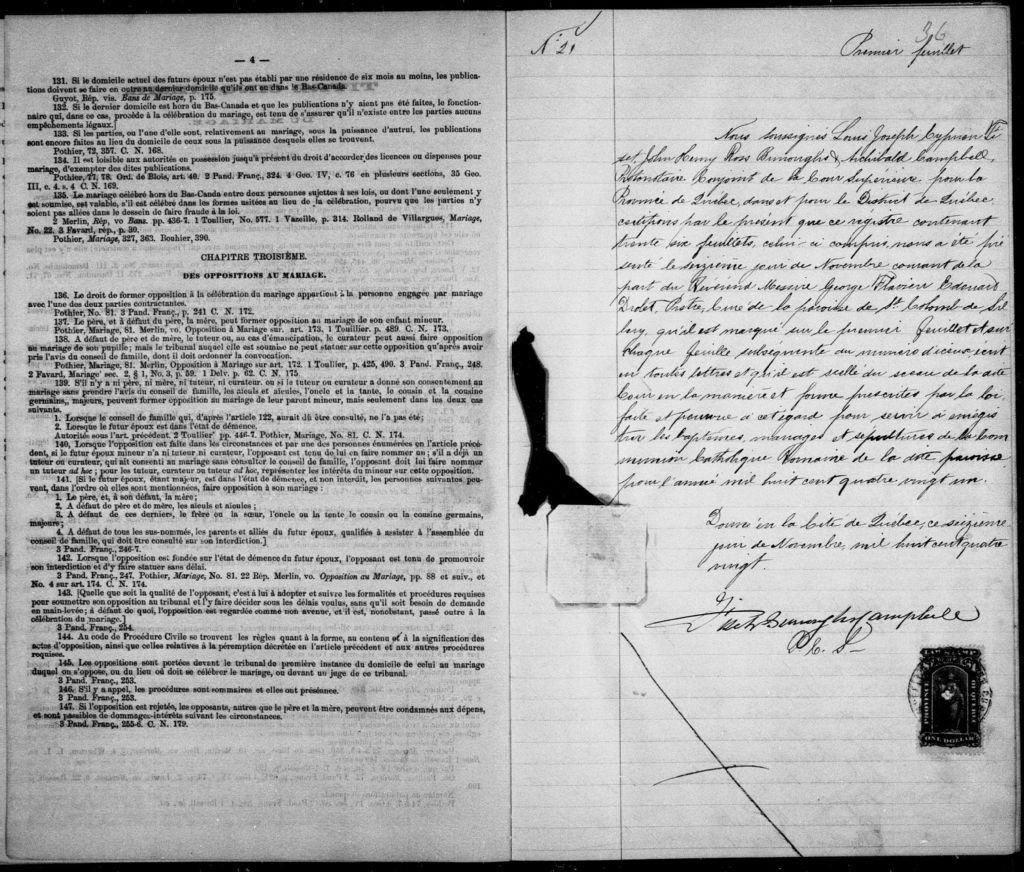 — 4 —
131. Si le domicile actuel des futurs époux n'est pas établi par une résidence de six mois au moins, les publica-
tions doivent se faire en outre au dernier domicile qu'ils ont eu dans le Bas-Canada.
Guyot, Rép. vis. Bans de Mariage, p. 175.
132. Si le dernier domicile est hors du Bas-Canada et que les publications n'y aient pas été faites, le fonction-
naire qui, dans ce cas, procède à la célébration du mariage, est tenu de s'assurer qu'il n'existe entre les parties aucuns
empêchements légaux.]
133. Si les parties, ou l'une d'elle sont, relativement au mariage, sous la puissance d'autrui, les publications
sont encore faites au lieu du domicile de ceux sous la puissance desquels elles se trouvent.
Pothier, 72, 357. C. N. 168.
134. Il est loisible aux autorités en possession jusqu'à présent du droit d'accorder des licences ou dispenses pour
mariage, d'exempter des dites publications.
Pothier, 77, 78. Ord. de Blois, art. 40. 2 Pand. Franç., 324. 4 Geo. IV, c. 76 en plusieurs sections, 35 Geo.
III, c. 4. s. 4 C. N. 169.
135. Le mariage célébré hors du Bas-Canda entre deux personnes sujettes à ses lois, ou dont l'une seulement y
est soumise, est valable, s'il est célébré dans les formes usitées au lieu de la célébration, pourvu que les parties n'y
soient pas allées dans le dessein de faire fraude à la loi.
2 Merlin, Rép, vo Bans. pp. 436-7. 1 Toullier, No. 577. 1 Vazeille, p. 314. Rolland de Villargues, Mariage,
No. 22. 3 Favard, rép., p. 39.
Pothier, Mariage, 327, 363. Bouhier, 390.
CHAPITRE TROISIÈME.
DES OPPOSITIONS AU MARIAGE.
136. Le droit de former opposition à la célébration du mariage appartient à la personne engagée par mariage
avec l'une des deux parties contractantes.
Pothier, No. 81. 3 Pand. Franç., p. 241 C. N. 172.
137. Le père, et à défaut du père, la mère, peut former opposition au mariage de son enfant mineur.
Pothier, Mariage, 81. Merlin, vo. Opposition à Mariage sur. art. 173, 1 Touillier, p. 489. C. N. 173.
138. A défaut de père et de mère, le tuteur ou, au cas d'émancipation, le curateur peut aussi faire opposition
au mariage de son pupille; mais le tribunal auquel elle est soumise ne peut statuer sur cette opposition qu'après avoir
pris l'avis du conseil de famille, dont il doit ordonner la convocation.
Pothier, Mariage, 81. Merlin, Opposition à Mariage sur art. 172. 1 Toulier, p. 425, 490. 3 Pand. Franç., 248.
2 Favard, Mariage sec. 2, § 1, No. 3, p. 59. 1 Delv. p. 62. C. N. 175.
139. S'il n'y a ni père, ni mère, ni tuteur, ni curateur. ou si le tuteur ou curateur a donné son consentement au
mariage sans prendre l'avis du conseil de famille, les aïeuls et aïeules, l'oncle et la tante, le cousin et la cousine
germains,, majeurs, peuvent former opposition au mariage de leur parent mineur, mais seulement dans les deux cas
suivants.
1. Lorsque le conseil de famille qui, d'après l'article 122, aurait dû être consulté, ne l'a pas été;
2. Lorsque le futur époux est dans l'état de démence.
Autorité sous l'art. précédent. 2 Toullier pp. 446-7. Pothier, Mariage, No. 81. C. N. 174.
140. Lorsque l'opposition est faite dans les circonstances et par une des personnes énumérées en l'article précé-
dent, si le futur époux mineur n'a ni tuteur ni curateur, l'opposant est tenu de lui en faire nommer un; s'il a déjà un
tuteur ou curateur, qui ait consenti au mariage sans consulter le conseil de famille, l'opposant doit lui faire nommer
un tuteur ad hoc; pour les tuteur, curateur ou tuteur ad hoc, représenter les intérêts du mineur sur cette opposition.
141. [Si le futur époux, étant majeur, est dans l'état de démence, et non interdit, les personnes suivantes peu-
vent, dans l'ordre où elles sont mentionnées, faire opposition à son mariage:
1. Le père, et, à son défaut, la mère;
2. A défaut de père et de mère, les aïeuls et aïeules;
3. A défaut de ces derniers, le frère ou la sœur, l'oncle ou la tente, le cousin ou la cousine germains,
majeurs;
4. A défaut de tous les sus-nommés, les parents et alliés du futur époux, qualifiés à assister à l'assemblée du
conseil de famille, qui doit être consulté sur son interdiction.]
3 Pand. Franç., 246-7.
142. Lorsque l'opposition est fondée sur l'état de démence du futur époux, l'opposant est tenu de promouvoir
son interdiction et d'y faire statuer sans délai.
3 Pand. Franç., 247. Pothier, Mariage, No. 81. 22 Rép. Merlin, vo. Opposition au Mariage, pp. 88 et suiv., et
No. 4 sur art. 174. C. N. 174.
143. [Quelle que soit la qualité de l'opposant, c'est à lui à adopter et suivre les formalités et procédures requises
pour soumettre son opposition au tribunal et l'y faire décider sous les délais voulus, sans qu'il soit besoin de demande
en main-levée; à défaut de quoi, l'opposition est regardée comme non avenue, et il est, nonobstant, passé outre à la
célébration du mariage.]
3 Pand. Franç., 254.
144. Au code de Procédure Civile se trouvent les règles quant à la forme, au contenu et à la signification des
actes d'opposition, ainsi que celles relatives à la péremption décrétée en l'article précédent et aux autres procédures
requises.
145. Les oppositions sont portées devant le tribunal de première instance du domicile de celui au mariage
duquel on s'oppose, ou du lieu où doit se célébrer le mariage, ou devant un juge de ce tribunal.
3 Pand. Franç., 253.
146. S'il y a appel, les procédures sont sommaires et elles ont préséance.
3 Pand. Franç., 253.
147. Si l'opposition est rejetée, les opposants, autres que le père et la mère, peuvent être condamnés aux dépens,
et sont passibles de dommages-intérêts suivant les circonstances.
3 Pand. Franç., 255-6. C. N. 179.
36
No 21
Premier feuillet
Nous soussignés Louis Joseph Cyprien Fi
set, John Henry Ross Burroughs & Archibald Campbell,
Protonotaire Conjoint de la Cour Supérieure pour la
Province de Québec, dans et pour le District de Québec
certifions par le présent que ce régistre contenant
trente six feuillets, celui-ci compris, nous a été pré
senté le seizième jour de Novembre courant de la
part du Révérend Messire George Flavien Edouard
Drolet, Prêtre, Curé de la paroisse de St Colomb de Sil
lery, qu'il est marqué sur le premier feuillet et sur
chaque feuille subséquente du numéro d'iceux écrit
en toutes lettres et qu'il est scellé du sceau de la dite
Cour en la manière et forme prescrites par la loi
faite et pourvue à cet égard pour servir à enrégis
trer les baptêmes, mariages et sépultures de la Com
munion Catholique Romaine de la dite paroisse
pour l'année mil huit cent quatre vingt un.
Donné en la Cité de Québec, ce seizième
jour de Novembre, mil huit cent quatre
vingt.
Fiset Burroughs Campbell
P. C. S
PROVINCE OF QUEBEC
ONE DOLLAR